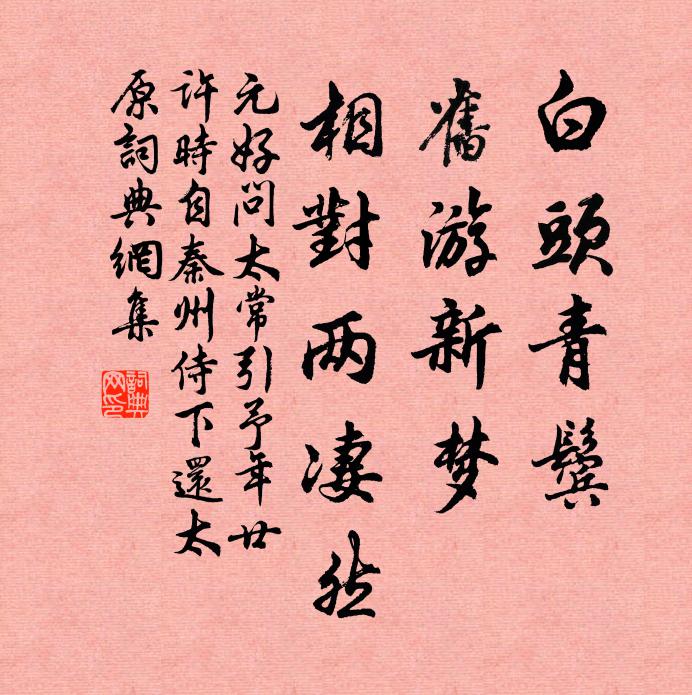 白頭青鬢
舊游新梦
相對两凄然
元好問太常引予年廿
許時自秦州侍下還太
原詞典網集
詞典网印